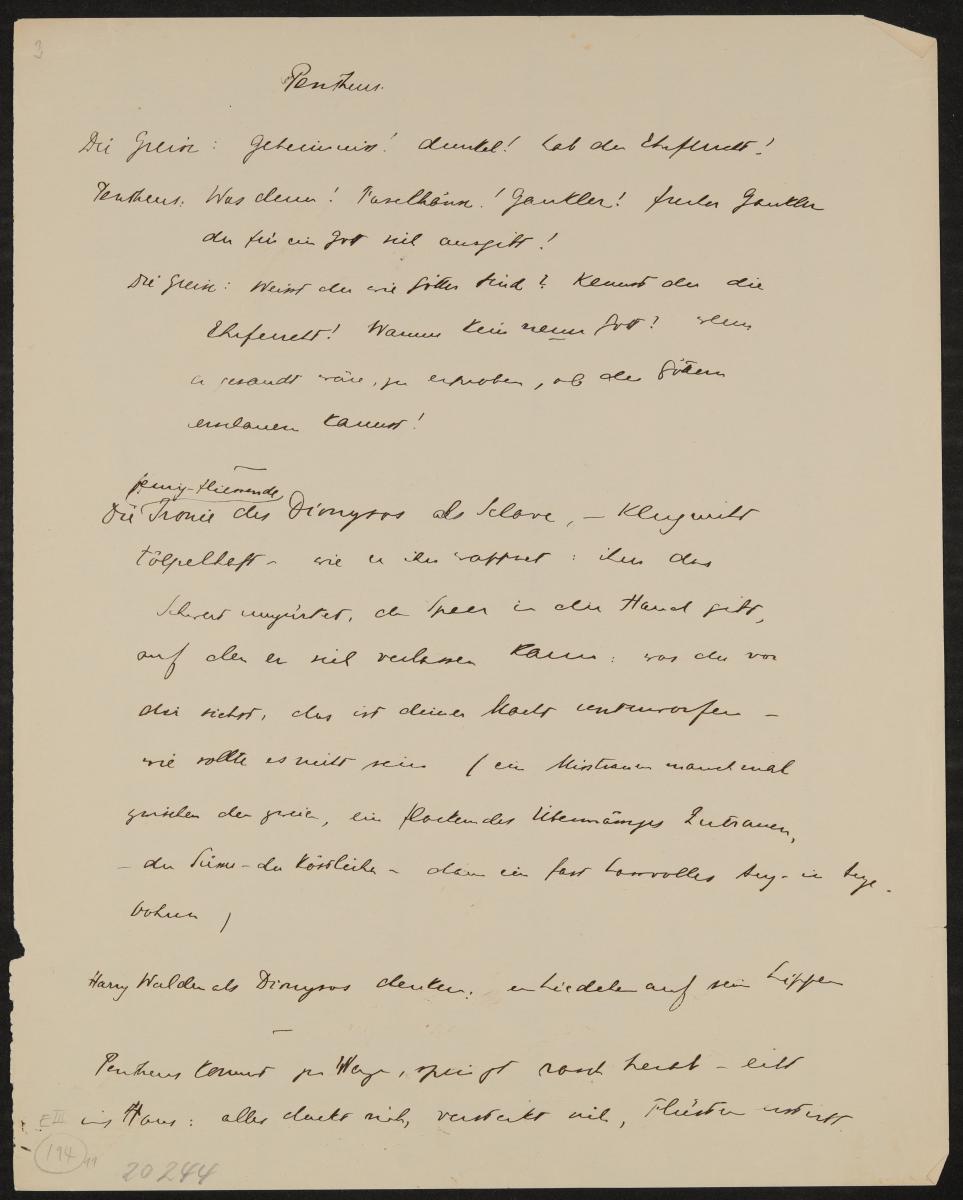 3
Pentheus.
Die Greise: Geheimniss! dunkel! hab du Ehrfurcht!
Pentheus. Was denn! Faselhänse! Gaukler! frecher Gaukler
der für ein Gott sich ausgibt!
Die Greise: Weisst du wie Götter sind? Kennst du die
Ehrfurcht! Warum kein neuer Gott? wenn
er gesandt wäre, zu erproben, ob du Göttern
erschauern kannst!
Die Ironie des Dionysos als Sclave, – Klug mild
tölpelhaft – wie er ihn waffnet: ihm das
Schwert umgürtet, den Speer in die Hand gibt,
auf den er sich verlassen kann: was du vor
dir siehst, das ist deiner Macht unterworfen –
wie sollte es nicht sein (ein Misstrauen manchmal
zwischen den zweien, ein flackerndes Zutrauen,
– der Süsse – der Köstliche – dann ein fast Aug- in Auge-
bohren)
Harry Walden als Dionysos denken: ein Liedchen auf sein Lippen
Pentheus kommt zu Wagen, springt rasch herab – eilt
ins Haus: alles duckt sich, versteckt sich, Flüstern erstirbt.
E III
194
20244